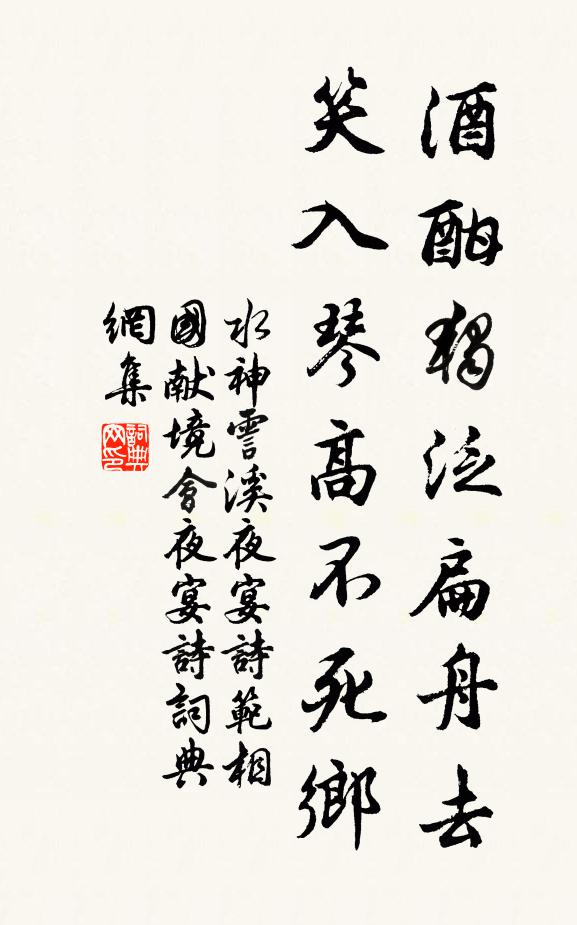 酒酣獨泛扁舟去
笑入琴高不死鄉
水神雪溪夜宴詩範相
國献境會夜宴詩詞典
網集
詞典网印